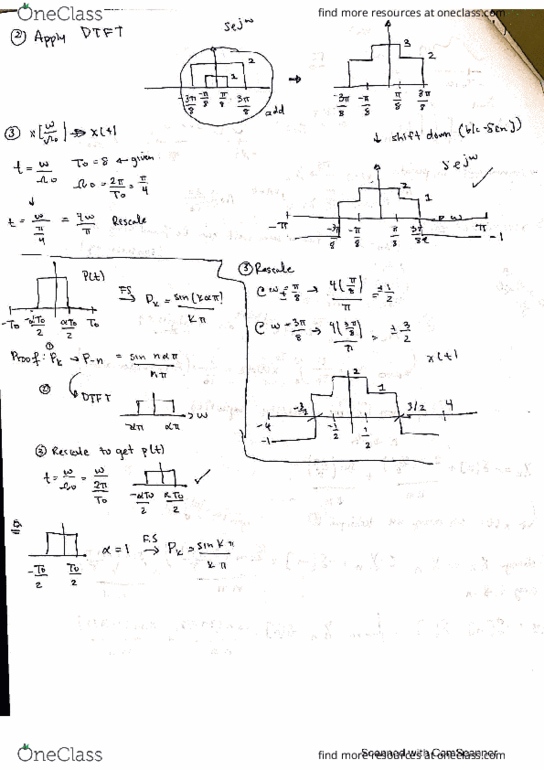 OneClass
find more resources at oneclass.com
② Apply DTFT
s e^jω
2
1
-3π/8 -π/8 π/8 3π/8
add
→
3
2
-3π/8 -π/8 π/8 3π/8
③ x[ω/Ω0] → x(t)
t = ω/Ω0
T0 = 8 ← given
Ω0 = 2π/T0 = π/4
↓ shift down (b/c -δ[n])
s e^jω
t = ω/(π/4) = 4ω/π Rescale
2
1
-π -3π/8 -π/8 π/8 3π/8 ω π
-1
P(t)
-T0 -αT0/2 αT0/2 T0
FS →
Pk = sin(kαπ)/kπ
③ Rescale
@ ω = ±π/8 → 4(π/8)/π = ±1/2
@ ω = 3π/8 → 4(3π/8)/π = ±3/2
x(t)
Proof: ① Pk → P-n = sin nαπ/nπ
② DTFT
-απ απ → ω
2
1
-4 -3/2 -1/2 1/2 3/2 4
-1
③ Rescale to get p(t)
t = ω/Ω0 = ω/(2π/T0)
-αT0/2 αT0/2
-T0/2 T0/2
α = 1 F.S → Pk = sin kπ/kπ
OneClass
find more resources at oneclass.com
Scanned with CamScanner